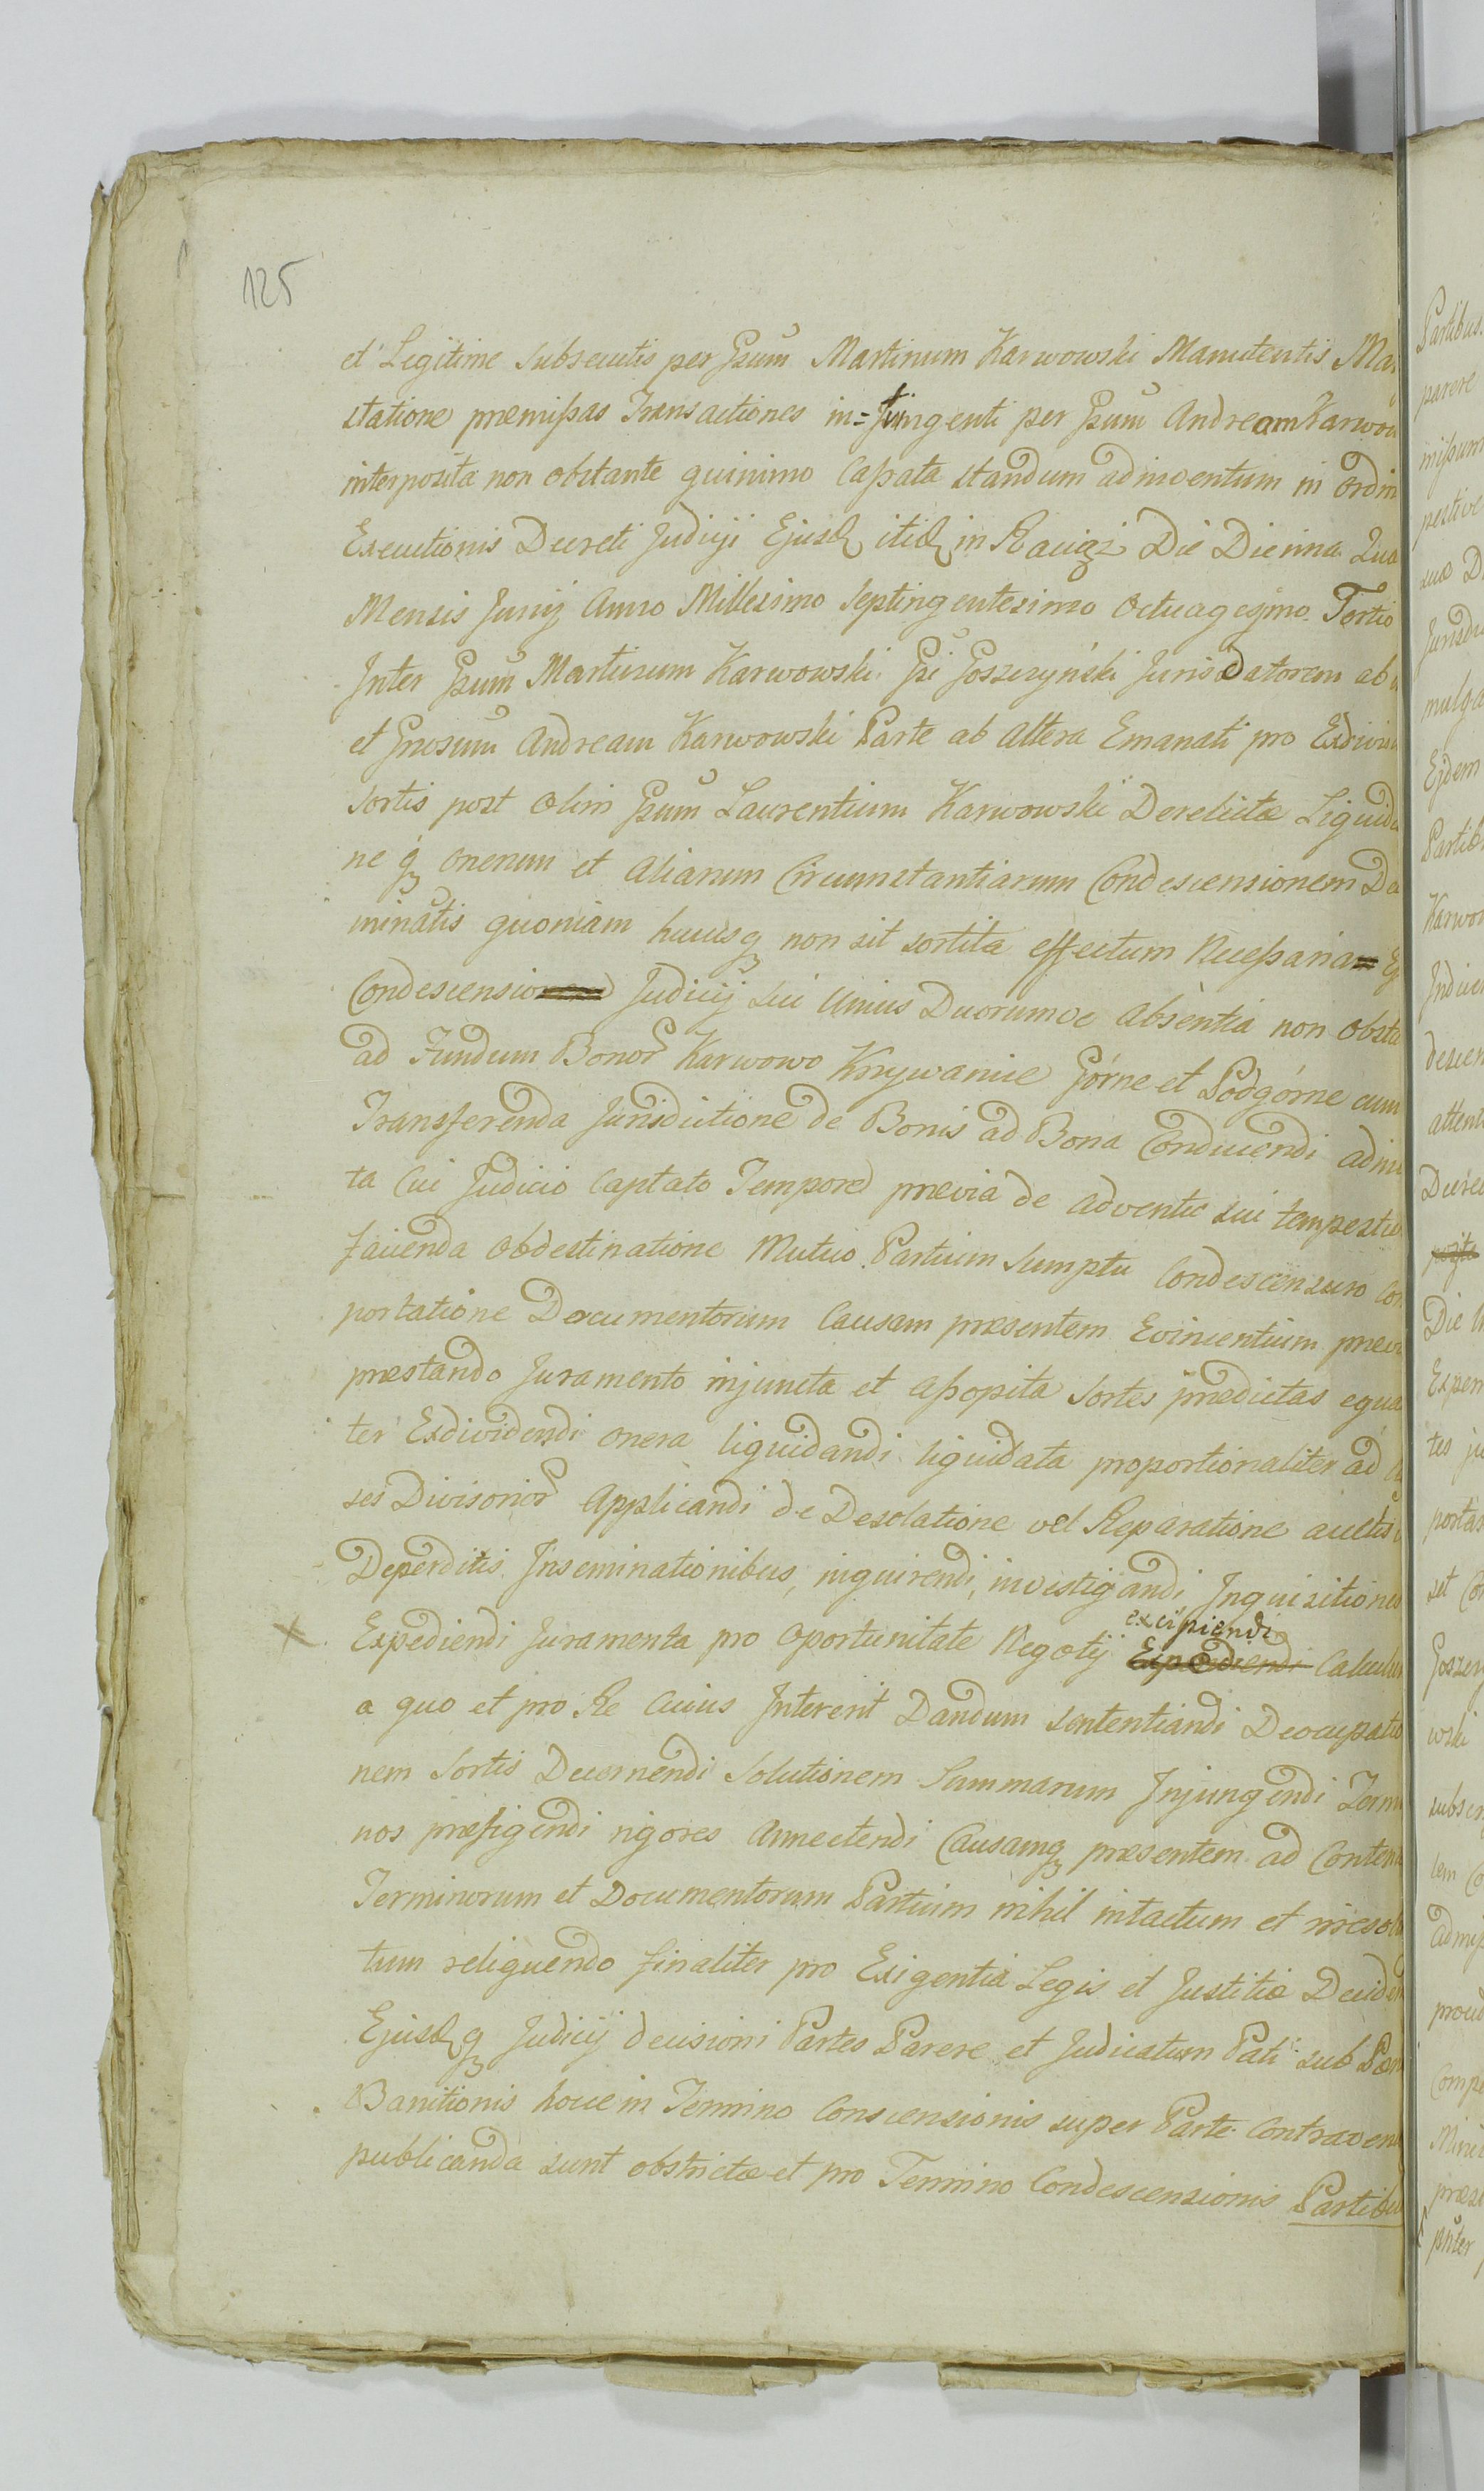 125
et Legitime subsecutis per Gsum Martinum Karwowski Manutentis Ma
statione præmißas Transactiones in=fringenti per Gsum Andream Karwow
interposita non obstante quinimo Caßata standum adinventum in ordin
Executionis Decreti Judicji Ejusd itid in Racigz Die Dienna Qua
Mensis Junij Anno Millesimo Septingentesimo Octuagesimo Tertio
Inter Gsum Martinum Karwowski Gsi Goszczyński Jurisdatorem ab
et Gnosum Andream Karwowski Parte ab altera Emanati pro Exdivis
sortis post olim Gsum Laurentium Karwowski Derelictæ Liquida
ne q onerum et aliarum Circumstantiarum Condescensionem De
minatis quoniam hucusq non sit sortita effectum Neceßaria E
Condescensio Judicij sui Unius Duorumve absentia non obsta
ad Fundum Bonor Karwowo Krzywanice Górne et Podgórne cum
Transferenda Jurisdictione de Bonis ad Bona Conducendi adin
ta Cui Judicio Captato Tempore prævia de adventu sui tempestiv
facienda Obdestinatione Mutuo Partium Sumptu Condescensuro Com
portatione Documentorum Causam præsentem Evincentium præv
præstando Juramento injuncta et aßopita Sortes prædictas equa
ter Exdividendi onera liquidandi liquidata proportionaliter ad
ses Divisorior Applicandi de Desolatione vel Reparatione auctis
Deperditis Inseminationibus, inquirendi, investigandi Inquisitiones
excipiendi
x Expediendi Juramenta pro Oportunitate Negotij Expediendi Calculu
a quo et pro Re Cuius Intererit Dandum sententiandi Deocupatio
nem Sortis Decernendi Solutionem Summarum Injungendi Termi
nos præfigendi rigores Annectendi Causamq præsentem ad Contenta
Terminorum et Documentorum Partium nihil intactum et irresolu
tum reliquendo finaliter pro Exigentia Legis et Justitiæ Decide
Ejusd q Judicij decisioni Partes Parere et Judicatum Pati sub Pæn
Banitionis hocce in Termino Conscensionis super Parte Contraven
publicanda sunt obstrictæ et pro Termino Condescensionis Partibu
Partibus
parere
mißum
pestive
suæ D
Jurisdi
mulga
Ejdem
Partib
Karwow
Indu
descen
attent
Decre
Die
Expen
tes ju
portat
set Co
Goszcz
wski
subse
lem Co
admiß
proud
Compe
Minis
præse
pnter